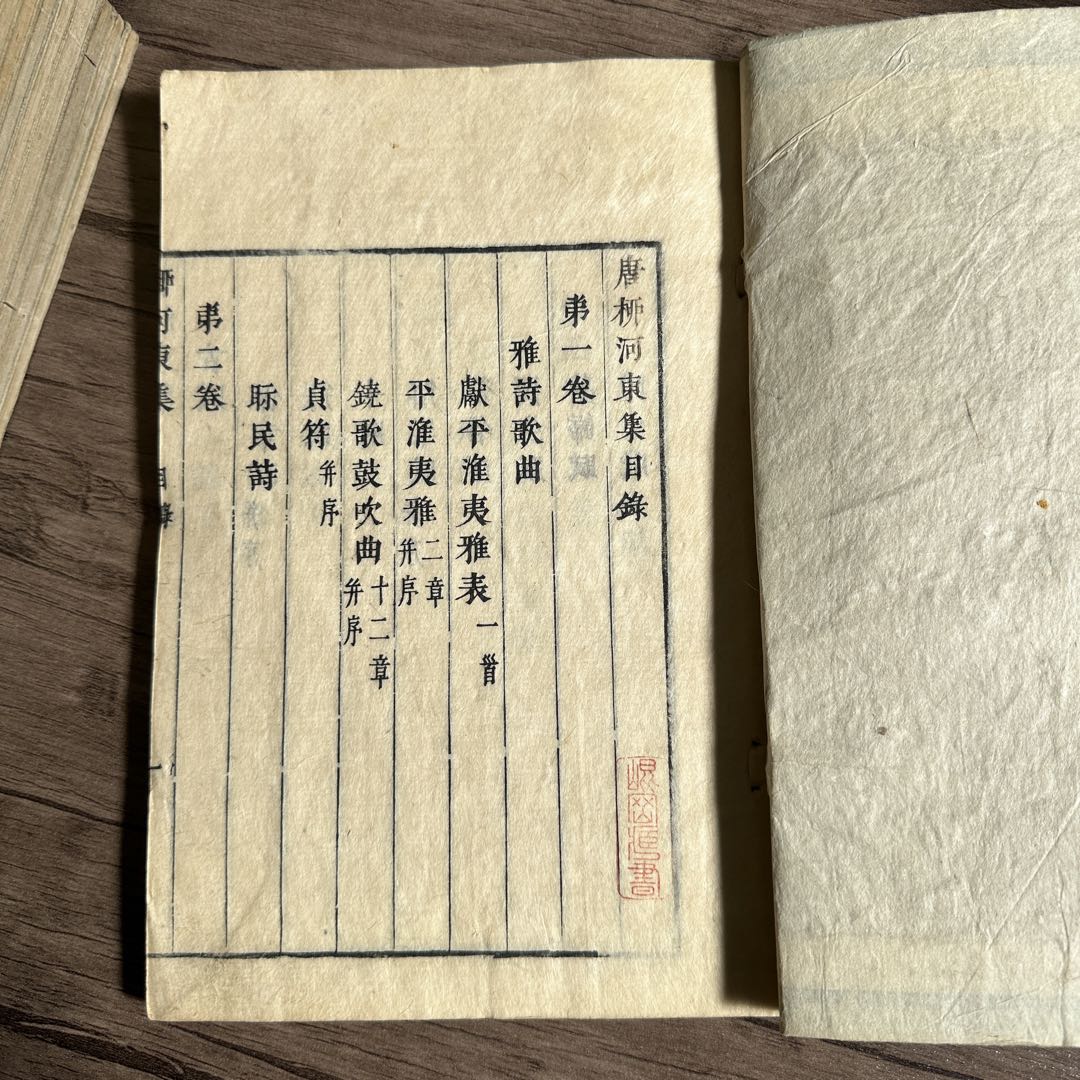 唐栁河東集目錄
弟一卷
雅詩歌曲
獻平淮夷雅表一首
平淮夷雅二章并序
鐃歌鼓吹曲十二章并序
貞符并序
眎民詩
弟二卷
栁河東集 目錄 一